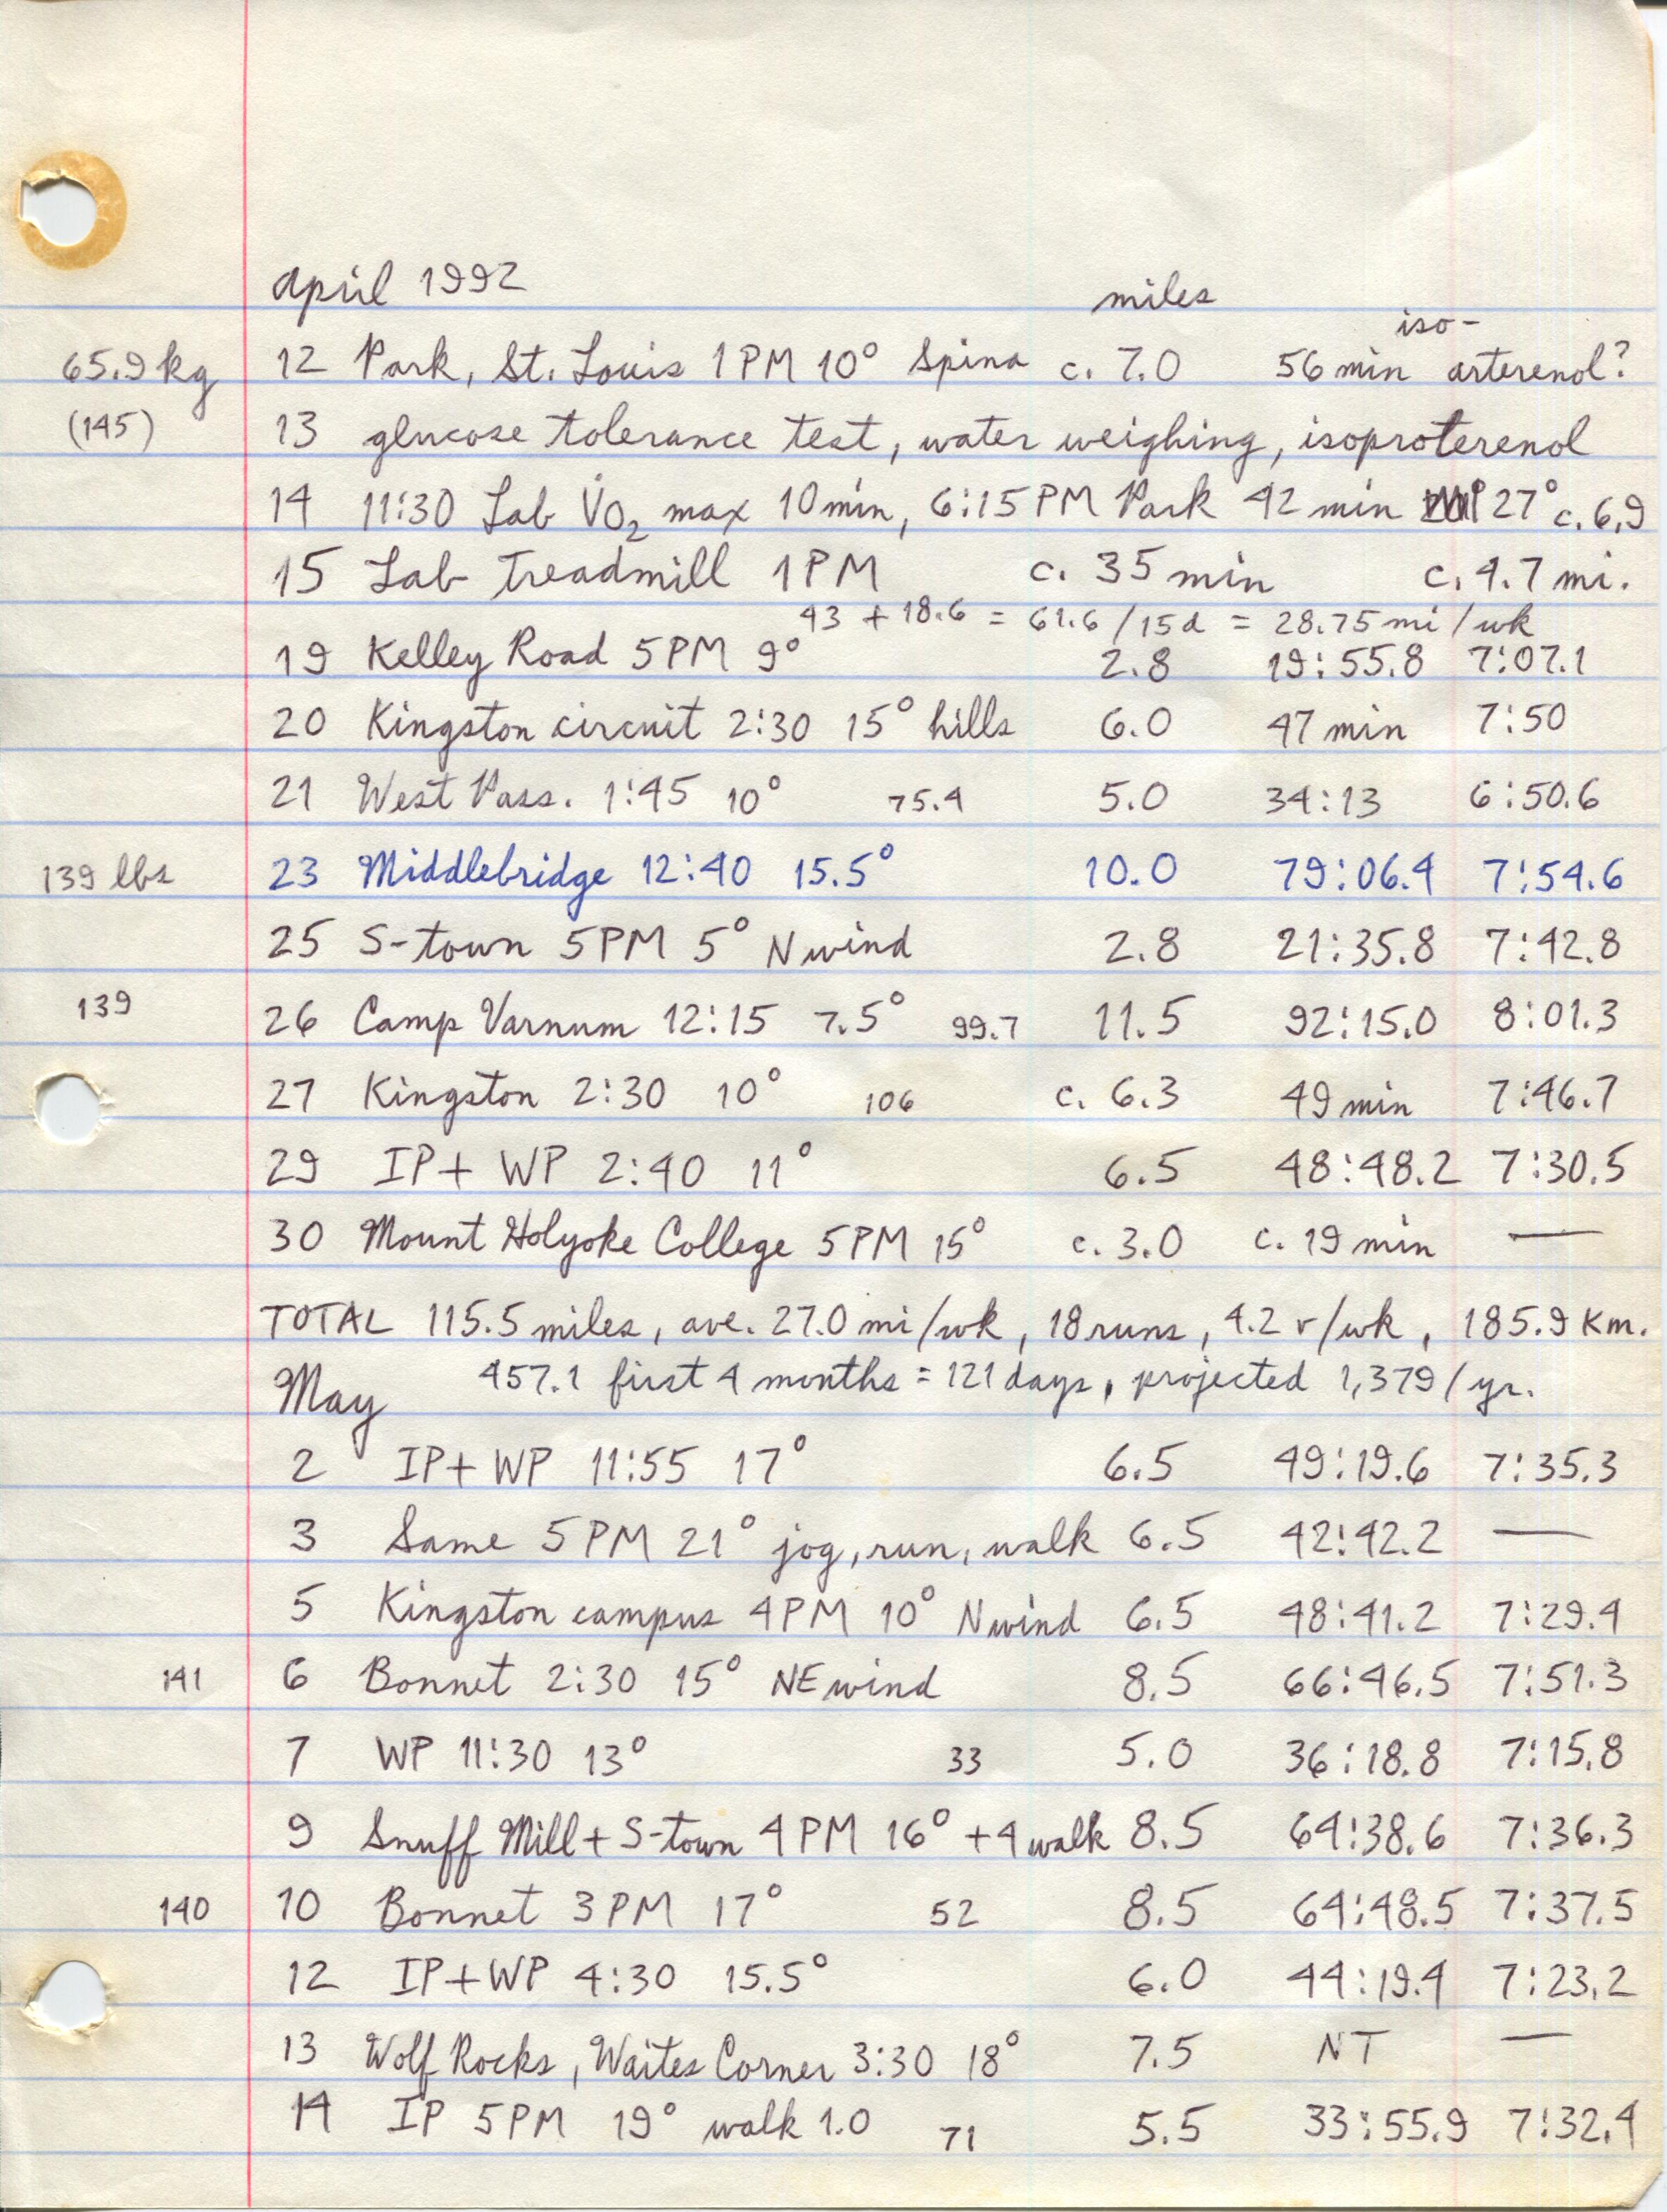 April 1992 miles
iso-
65.9 kg 12 Park, St. Louis 1 PM 10° Spina c. 7.0 56 min arterenol?
(145) 13 glucose tolerance test, water weighing, isoproterenol
14 11:30 Lab V̇O₂ max 10 min, 6:15 PM Park 42 min 27° c. 6.9
15 Lab treadmill 1 PM c. 35 min c. 4.7 mi.
43 + 18.6 = 61.6 / 15d = 28.75 mi/wk
19 Kelley Road 5 PM 9° 2.8 19:55.8 7:07.1
20 Kingston circuit 2:30 15° hills 6.0 47 min 7:50
21 West Pass. 1:45 10° 75.4 5.0 34:13 6:50.6
139 lbs 23 Middlebridge 12:40 15.5° 10.0 79:06.4 7:54.6
25 S-town 5 PM 5° N wind 2.8 21:35.8 7:42.8
139 26 Camp Varnum 12:15 7.5° 99.7 11.5 92:15.0 8:01.3
27 Kingston 2:30 10° 106 c. 6.3 49 min 7:46.7
29 IP + WP 2:40 11° 6.5 48:48.2 7:30.5
30 Mount Holyoke College 5 PM 15° c. 3.0 c. 19 min —
TOTAL 115.5 miles, ave. 27.0 mi/wk, 18 runs, 4.2 r/wk, 185.9 Km.
457.1 first 4 months = 121 days, projected 1,379 / yr.
May
2 IP + WP 11:55 17° 6.5 49:19.6 7:35.3
3 Same 5 PM 21° jog, run, walk 6.5 42:42.2 —
5 Kingston campus 4 PM 10° N wind 6.5 48:41.2 7:29.4
141 6 Bonnet 2:30 15° NE wind 8.5 66:46.5 7:51.3
7 WP 11:30 13° 33 5.0 36:18.8 7:15.8
9 Snuff Mill + S-town 4 PM 16° + 4 walk 8.5 64:38.6 7:36.3
140 10 Bonnet 3 PM 17° 52 8.5 64:48.5 7:37.5
12 IP + WP 4:30 15.5° 6.0 44:19.4 7:23.2
13 Wolf Rocks, Waites Corner 3:30 18° 7.5 NT —
14 IP 5 PM 19° walk 1.0 71 5.5 33:55.9 7:32.4